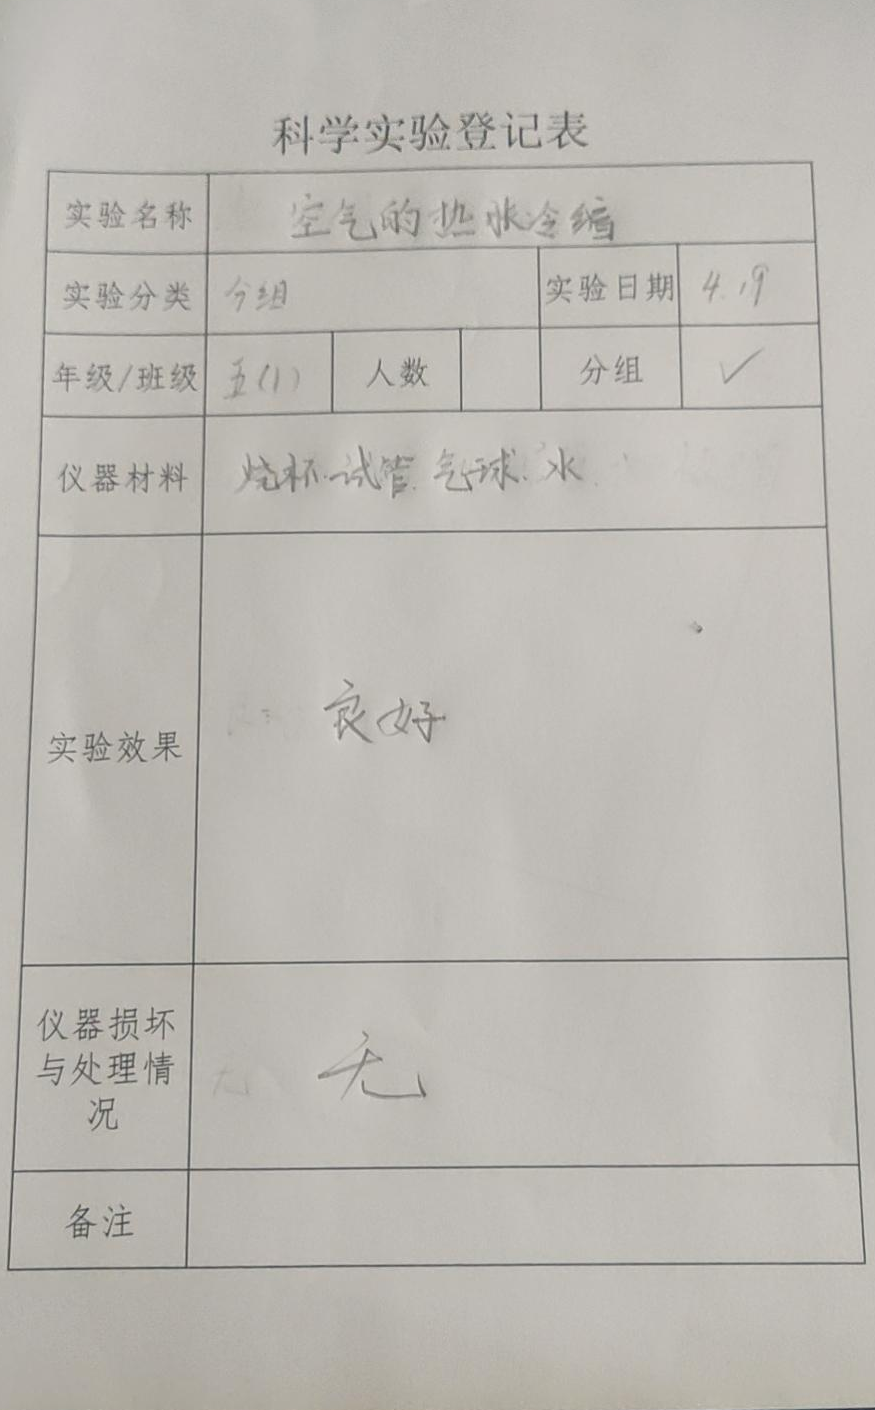 科学实验登记表
实验名称 空气的热胀冷缩
实验分类 分组 实验日期 4.19
年级/班级 五(1) 人数 分组 ✓
仪器材料 烧杯.试管.气球.水
实验效果 良好
仪器损坏
与处理情
况
无
备注